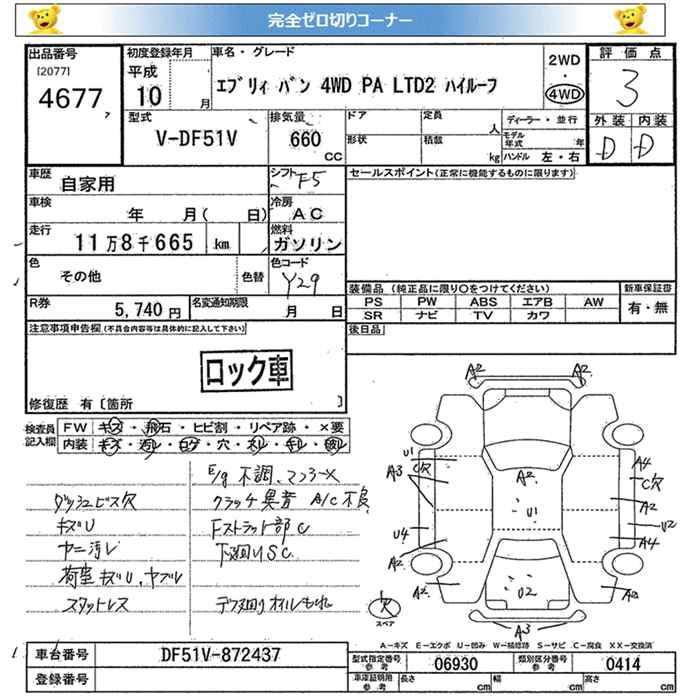 完全ゼロ切りコーナー
出品番号
[2077]
4677
初度登録年月
平成
10 月
車名・グレード
エブリィ バン 4WD PA LTD2 ハイルーフ
2WD
・
4WD
評価点
3
外装 内装
D D
型式
V-DF51V
排気量
660
cc
ドア
形状
定員
人
積載
kg
ディーラー・並行
モデル年式 年
ハンドル 左・右
車歴
自家用
シフト
F5
セールスポイント(正常に機能するものに限ります)
車検
年 月( 日)
冷房
AC
走行
11万8千665 km
燃料
ガソリン
色
その他
色替
色コード
Y29
装備品 (純正品に限り○をつけてください)
新車保証書
PS PW ABS エアB AW
SR ナビ TV カワ
有・無
R券
5,740 円
名変通知期限
月 日
後日品
注意事項申告欄(不具合内容等は具体的に記入して下さい)
ロック車
修復歴 有〔箇所 〕
検査員記入欄
FW キズ・飛石・ヒビ割・リペア跡・×要
内装 キズ・汚レ・コゲ・穴・スレ・キレ・破レ
E/g 不調、
ダッシュビス穴
クラッチ異音 A/C不良
キズU
Fストラット部C
ヤニ汚レ
下廻りSC
荷室キズU、ヤブレ
スタットレス
デフ廻りオイルもれ
A2 A2
U1
A3
C穴
A2
A4
C穴
A2
U1
U2
U4
A4
A2
A2
U2
A2
A3
スペア
A-キズ E-エクボ U-凹み W-補修跡 S-サビ C-腐食 XX-交換済
車台番号
DF51V-872437
登録番号
型式指定番号 参考
06930
類別区分番号 参考
0414
車庫証明用 参考
長さ cm
幅 cm
高さ cm